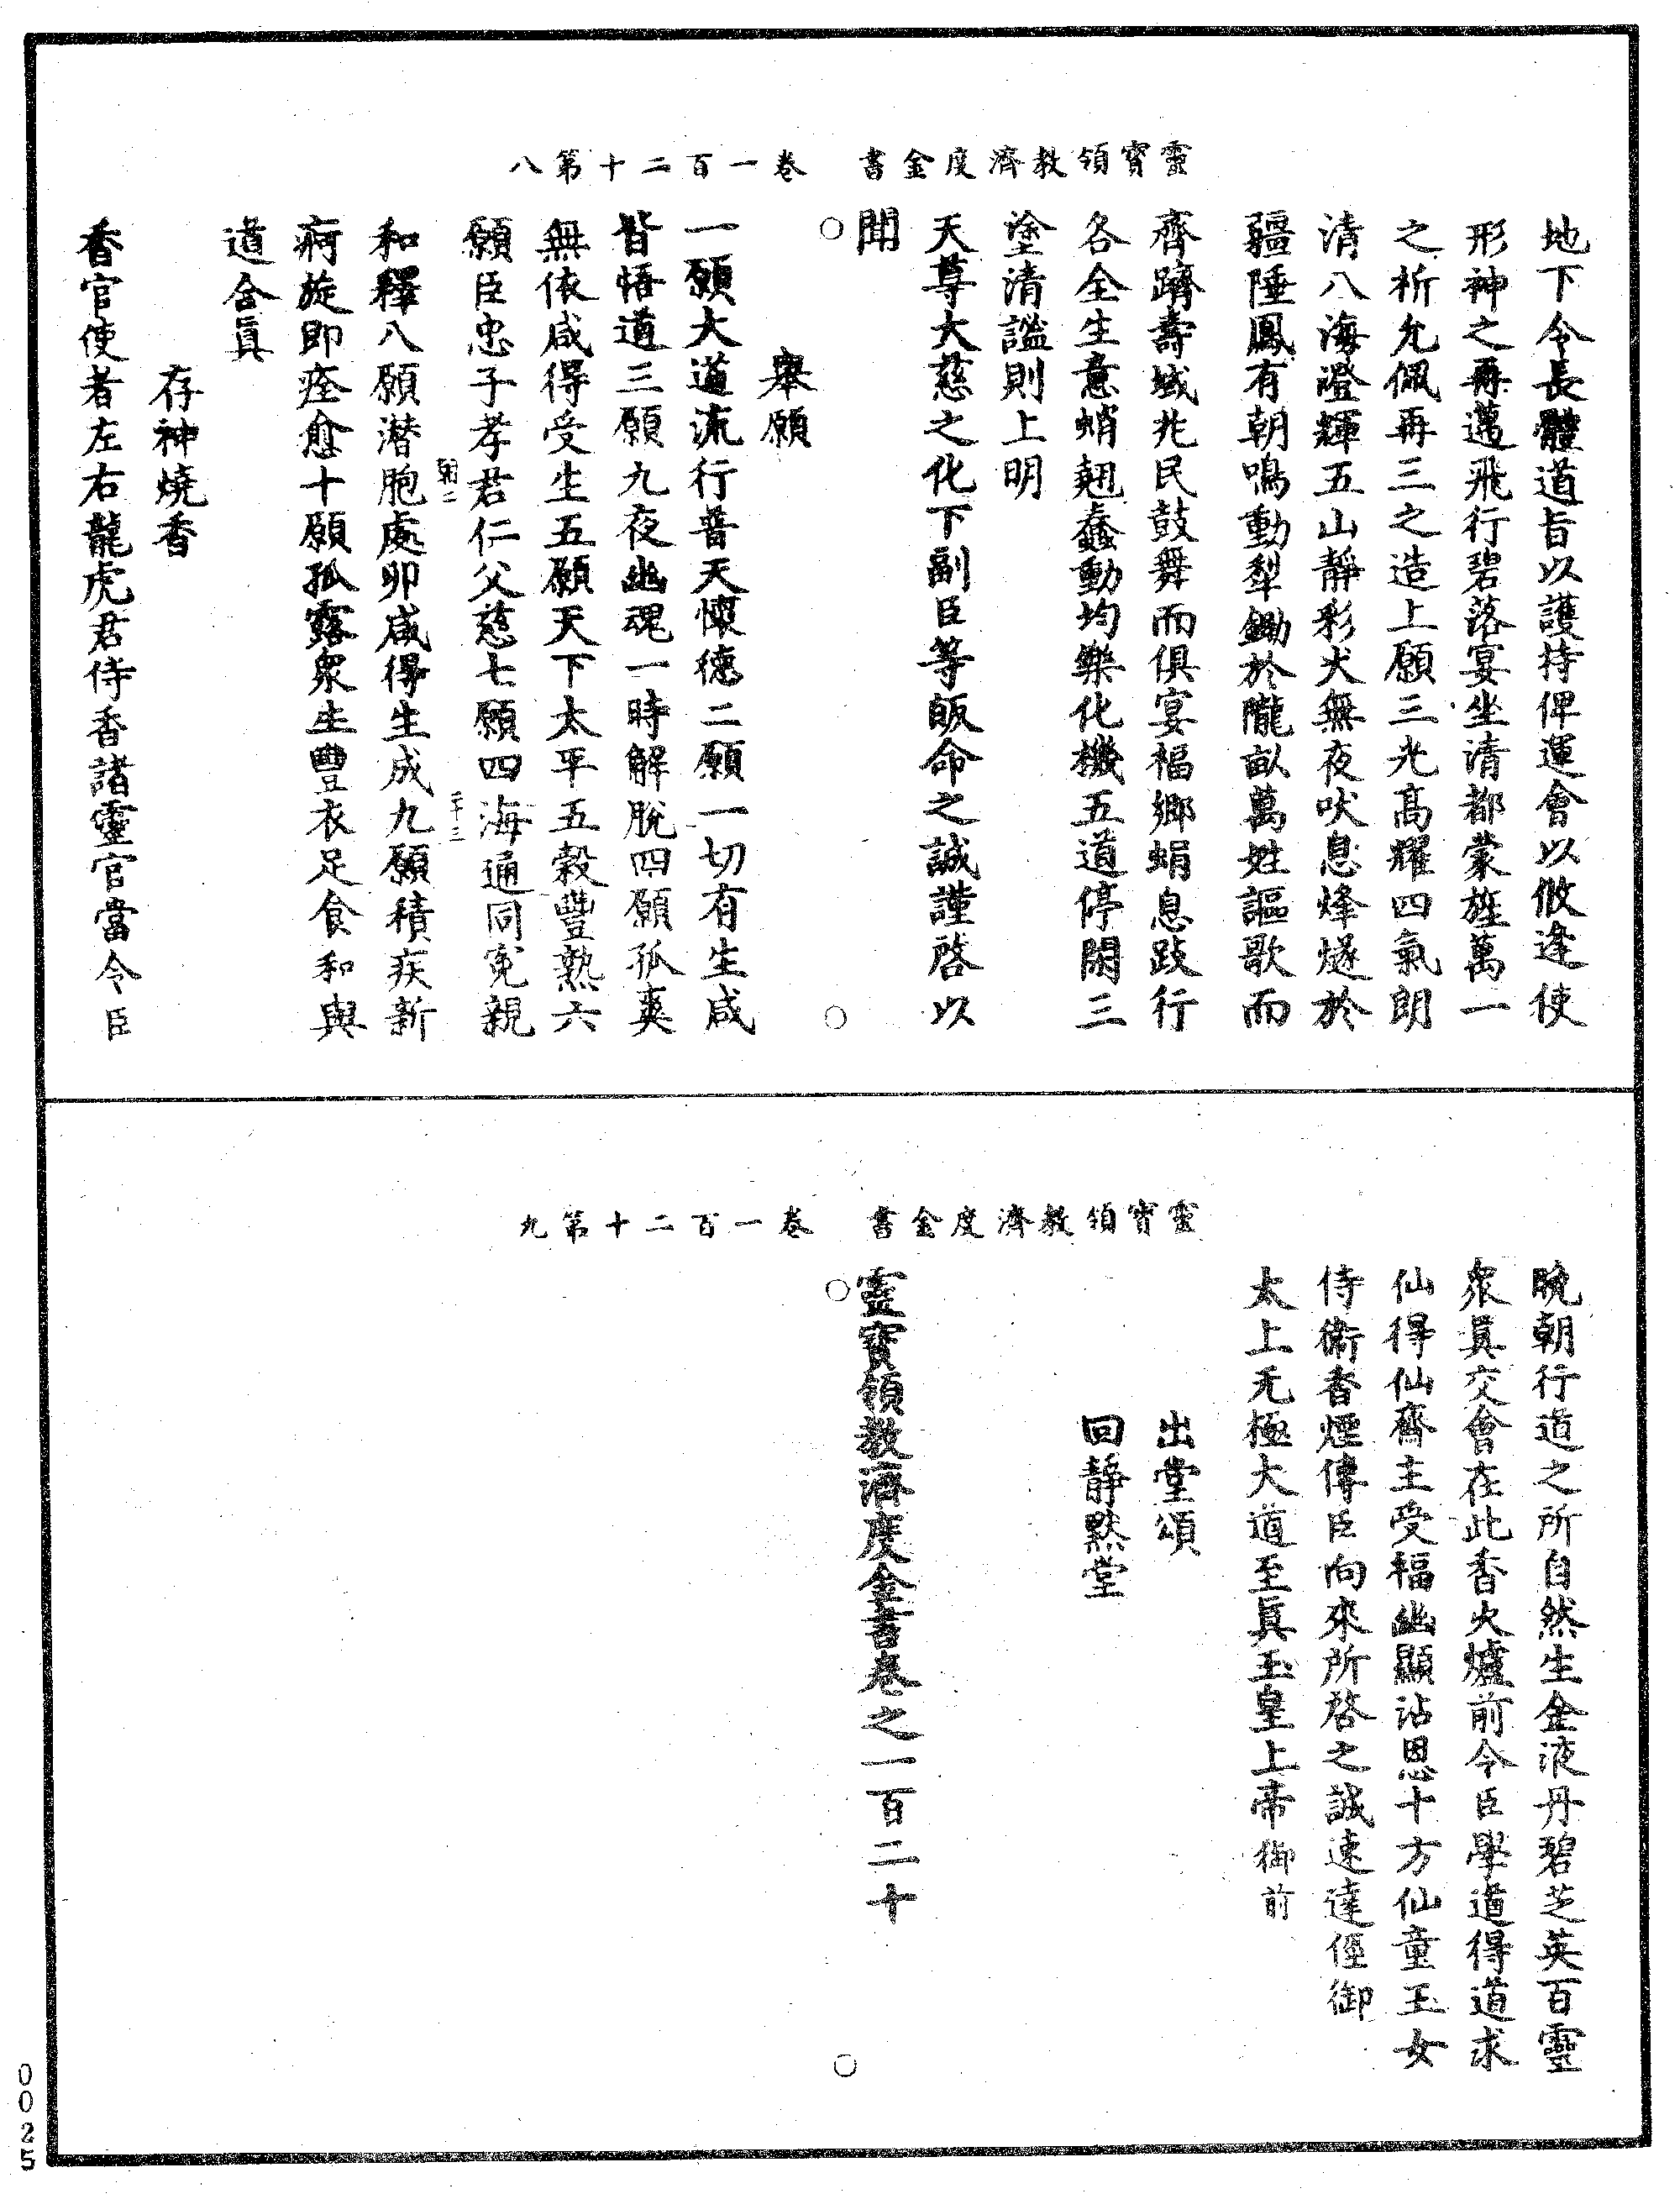 靈寶領教濟度金書　卷一百二十第八
地下令長體道旨以護持俾運會以攸逢使
形神之再邁飛行碧落宴坐清都蒙旌萬一
之析允佩再三之造上願三光高耀四氣朗
清八海澄輝五山靜彩犬無夜吠息烽燧於
疆陲鳳有朝鳴動犁鋤於隴畝萬姓謳歌而
齊躋壽域兆民鼓舞而俱宴福鄉蜎息跂行
各全生意蛸翹蠢動均樂化機五道停閑三
塗清謐則上明
天尊大慈之化下副臣等皈命之誠謹啓以
聞
舉願
一願大道流行普天懷德二願一切有生咸
皆悟道三願九夜幽魂一時解脫四願孤爽
無依咸得受生五願天下太平五穀豐熟六
願臣忠子孝君仁父慈七願四海通同冤親
朝二　二十三
和釋八願潜胞處卵咸得生成九願積疾新
痾旋即痊愈十願孤露衆生豐衣足食和與
道合眞
存神燒香
香官使者左右龍虎君侍香諸靈官當令臣
靈寶領教濟度金書　卷一百二十第九
晚朝行道之所自然生金液丹碧芝英百靈
衆眞交會在此香火爐前令臣學道得道求
仙得仙齋主受福幽顯沾恩十方仙童玉女
侍衛香煙傳臣向來所啓之誠速達徑御
太上无極大道至眞玉皇上帝御前
出堂頌
回靜默堂
靈寶領教濟度金書卷之一百二十
0025